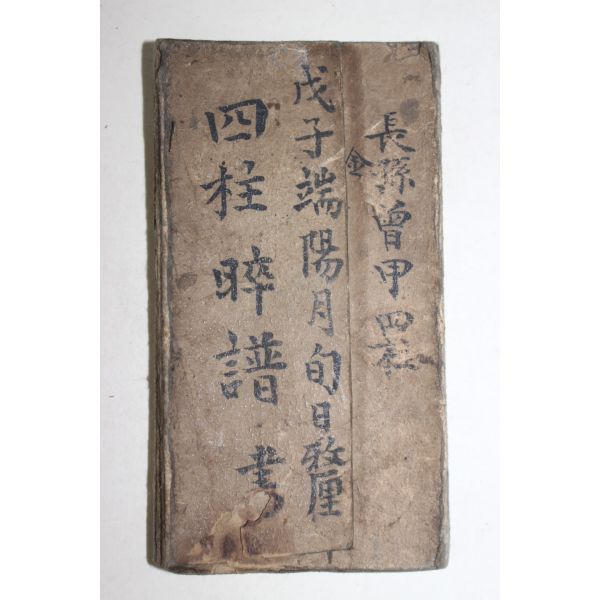 長孫曾甲四柱
金
戊子端陽月旬日
四柱晬譜書